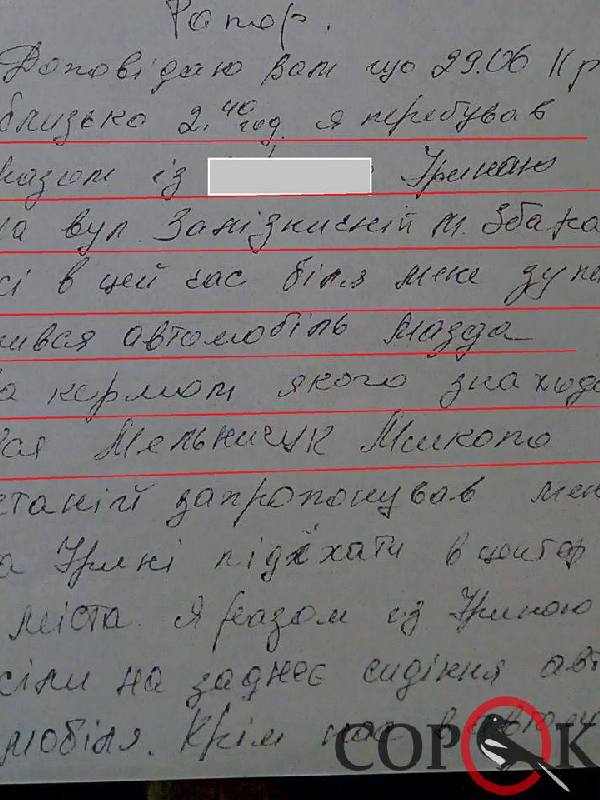 Рапорт.
Доповідаю вам що 29.06 11 р
близько 2.40 год. я перебував
разом із Іриною
на вул. Залізничній м. Збара
сі в цей час біля мене зупи
нився автомобіль мазда
за кермом якого знаходи
вся Мельничук Микола
станній запропонував мен
а Ірині підїхати в центр
міста. Я разом із Іриною
сіли на заднє сидіння авт
мобіля. Крім нас в авто
СОРОК